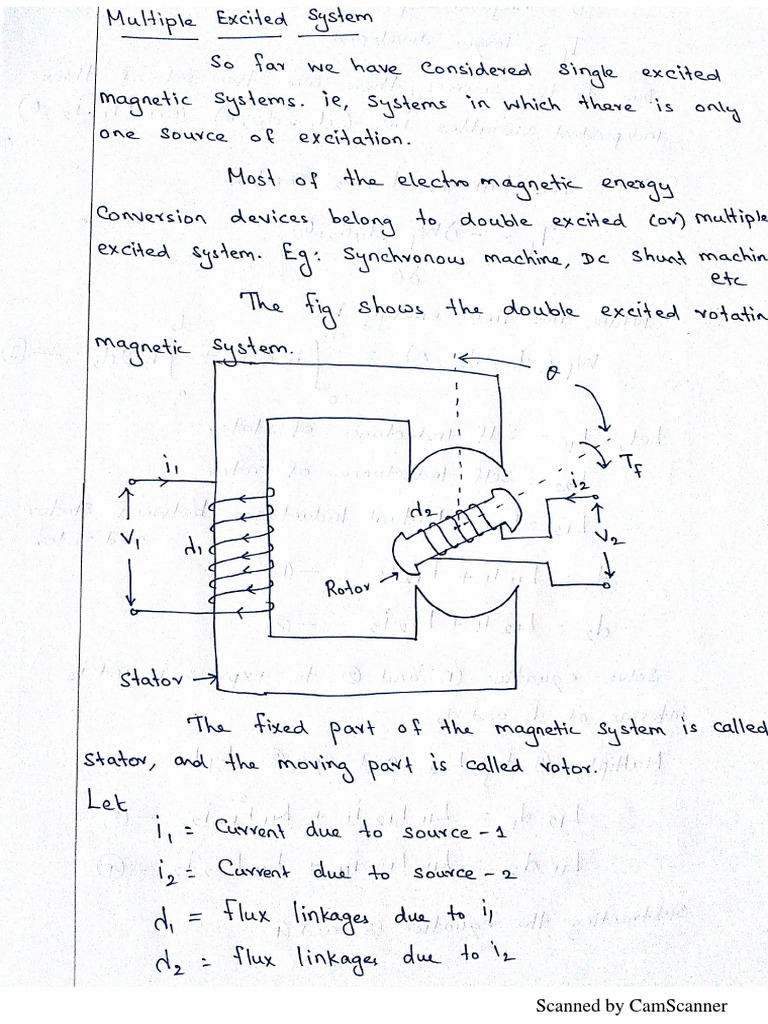 Multiple Excited System
So far we have considered single excited
magnetic systems. ie, systems in which there is only
one source of excitation.
Most of the electro magnetic energy
Conversion devices belong to double excited (or) multiple
excited system. Eg: Synchronous machine, DC shunt machin
etc
The fig shows the double excited rotatin
magnetic system.
θ
i1
Tf
i2
λ2
V1
λ1
V2
Rotor
Stator
The fixed part of the magnetic system is called
stator, and the moving part is called rotor.
Let
i1 = Current due to source - 1
i2 = Current due to source - 2
λ1 = flux linkages due to i1
λ2 = flux linkages due to i2
Scanned by CamScanner